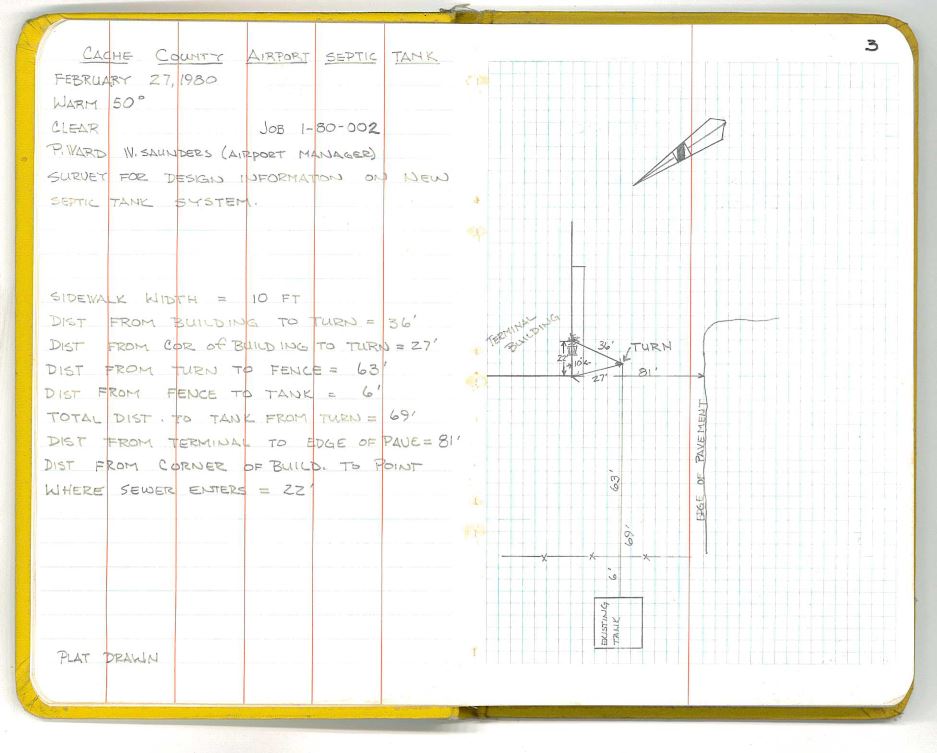 CACHE COUNTY AIRPORT SEPTIC TANK
FEBRUARY 27, 1980
WARM 50°
CLEAR JOB 1-80-002
P. WARD W. SAUNDERS (AIRPORT MANAGER)
SURVEY FOR DESIGN INFORMATION ON NEW
SEPTIC TANK SYSTEM.
SIDEWALK WIDTH = 10 FT
DIST FROM BUILDING TO TURN = 36'
DIST FROM COR of BUILDING TO TURN = 27'
DIST FROM TURN TO FENCE = 63'
DIST FROM FENCE TO TANK = 6'
TOTAL DIST. TO TANK FROM TURN = 69'
DIST FROM TERMINAL TO EDGE OF PAVE = 81'
DIST FROM CORNER OF BUILD. TO POINT
WHERE SEWER ENTERS = 22'
PLAT DRAWN
3
TERMINAL
BUILDING
36'
TURN
22'
10'
27'
81'
EDGE OF PAVEMENT
63'
69'
6'
EXISTING
TANK